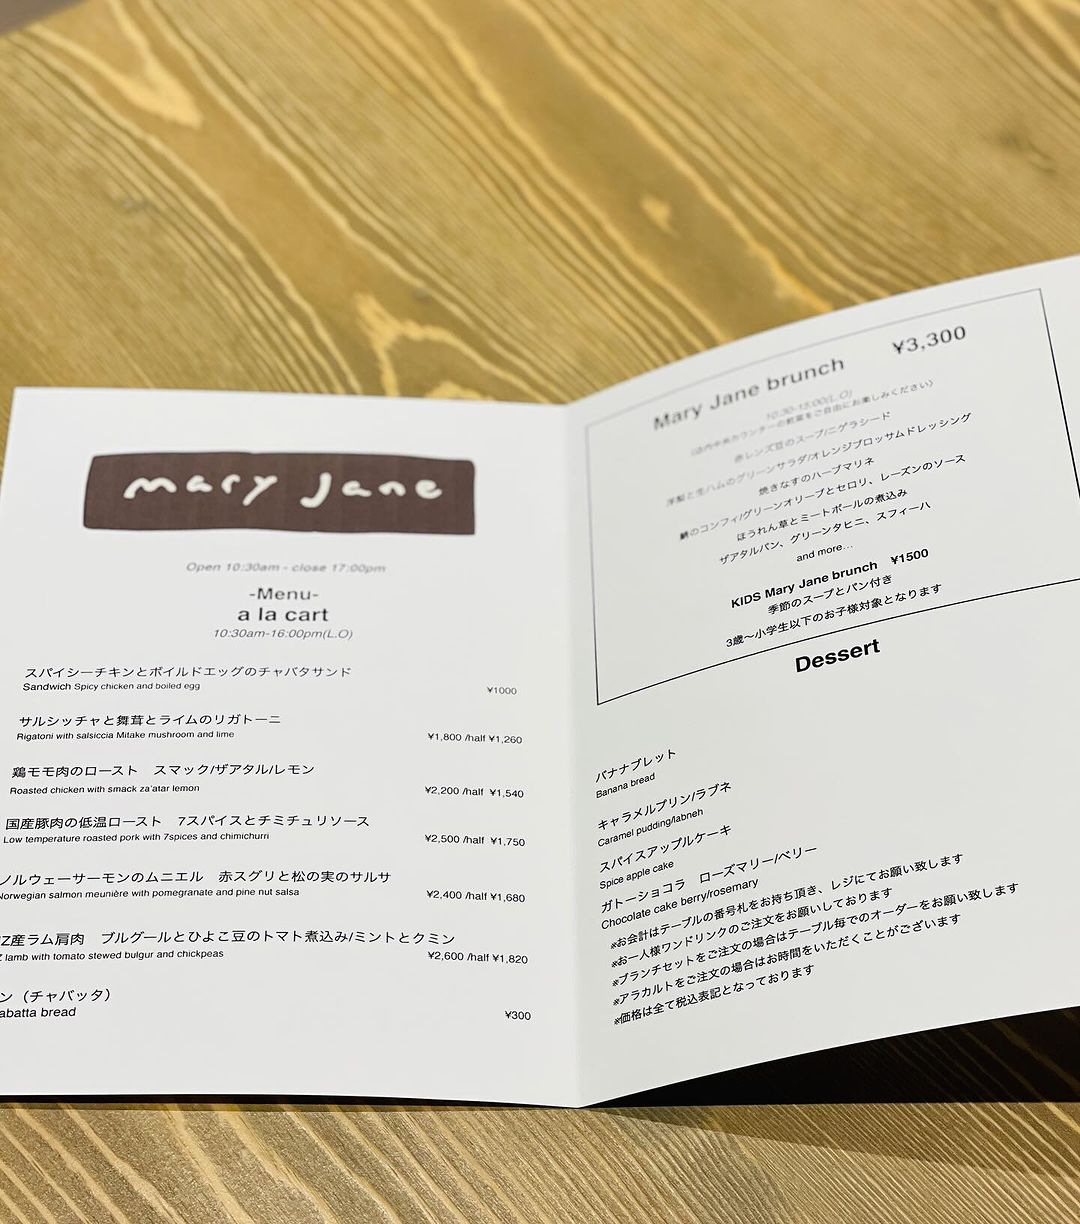 mary Jane
Open 10:30am - close 17:00pm
-Menu-
a la cart
10:30am-16:00pm(L.O)
スパイシーチキンとボイルドエッグのチャバタサンド
Sandwich Spicy chicken and boiled egg
¥1000
サルシッチャと舞茸とライムのリガトーニ
Rigatoni with salsiccia Mitake mushroom and lime
¥1,800 /half ¥1,260
鶏モモ肉のロースト　スマック/ザアタル/レモン
Roasted chicken with smack za'atar lemon
¥2,200 /half ¥1,540
国産豚肉の低温ロースト　7スパイスとチミチュリソース
Low temperature roasted pork with 7spices and chimichurri
¥2,500 /half ¥1,750
ノルウェーサーモンのムニエル　赤スグリと松の実のサルサ
Norwegian salmon meunière with pomegranate and pine nut salsa
¥2,400 /half ¥1,680
Z産ラム肩肉　ブルグールとひよこ豆のトマト煮込み/ミントとクミン
Z lamb with tomato stewed bulgur and chickpeas
¥2,600 /half ¥1,820
ン（チャバッタ）
abatta bread
¥300
Mary Jane brunch ¥3,300
10:30-15:00(L.O)
(店内中央カウンターの前菜をご自由にお楽しみください)
赤レンズ豆のスープ/ニゲラシード
洋梨と生ハムのグリーンサラダ/オレンジブロッサムドレッシング
焼きなすのハーブマリネ
鯖のコンフィ/グリーンオリーブとセロリ、レーズンのソース
ほうれん草とミートボールの煮込み
ザアタルパン、グリーンタヒニ、スフィーハ
and more…
KIDS Mary Jane brunch ¥1500
季節のスープとパン付き
3歳〜小学生以下のお子様対象となります
Dessert
バナナブレット
Banana bread
キャラメルプリン/ラブネ
Caramel pudding/labneh
スパイスアップルケーキ
Spice apple cake
ガトーショコラ　ローズマリー/ベリー
Chocolate cake berry/rosemary
※お会計はテーブルの番号札をお持ち頂き、レジにてお願い致します
※お一人様ワンドリンクのご注文をお願いしております
※ブランチセットをご注文の場合はテーブル毎でのオーダーをお願い致します
※アラカルトをご注文の場合はお時間をいただくことがございます
※価格は全て税込表記となっております